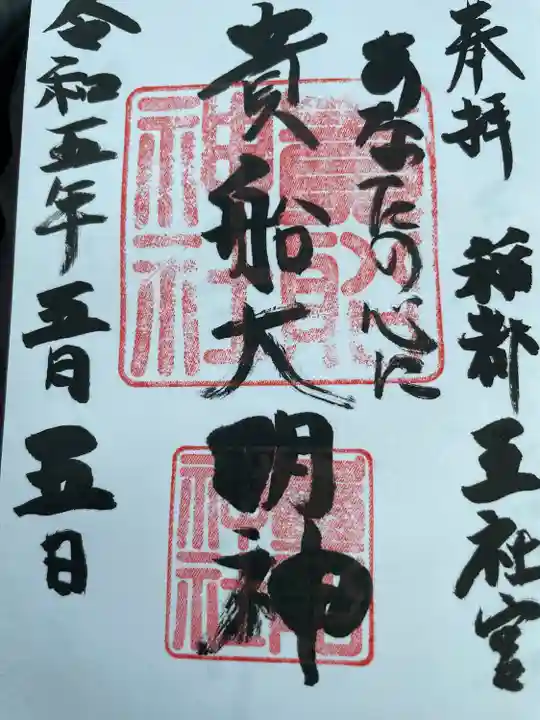 奉拝 稲都 王社宮
あなたの心に
貴船大明神
令和五年 五月 五日
貴船
神社
神社